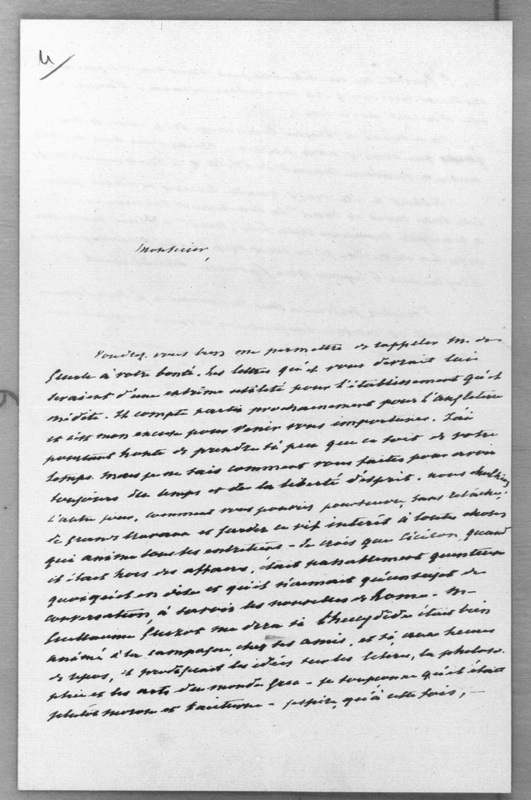 Monsieur,
Voudrez-vous bien me permettre de rappeler M. de
à votre bonté. Les lettres qu'il vous devrait lui
seraient d'une extrême utilité pour l'établissement qu'il
médite. Il compte partir prochainement pour l'Angleterre
et c'est mon excuse pour venir vous importuner. J'ai
pourtant honte de prendre si peu que ce soit de votre
temps. Mais je ne sais comment vous faites pour avoir
toujours du temps et de la liberté d'esprit. nous
l'autre jour, comment vous pouviez poursuivre, sans relâche,
de grands travaux et garder ce vif intérêt à toutes choses
qui anime tous les entretiens - Je crois que Cicéron, quand
il était hors des affaires, était passablement
quoiqu'il en dise et qu'il n'aimait qu'un sujet de
conversation, à savoir les nouvelles de Rome. M.
Guillaume Guizot me dira si Thucydide était bien
animé à la campagne, chez ses amis, et si aux heures
de repos, il prodiguait les idées sur les lettres, la philoso-
phie et les arts du monde grec - je soupçonne qu'il était
plutôt morose et taciturne - j'espère qu'à cette fois, -